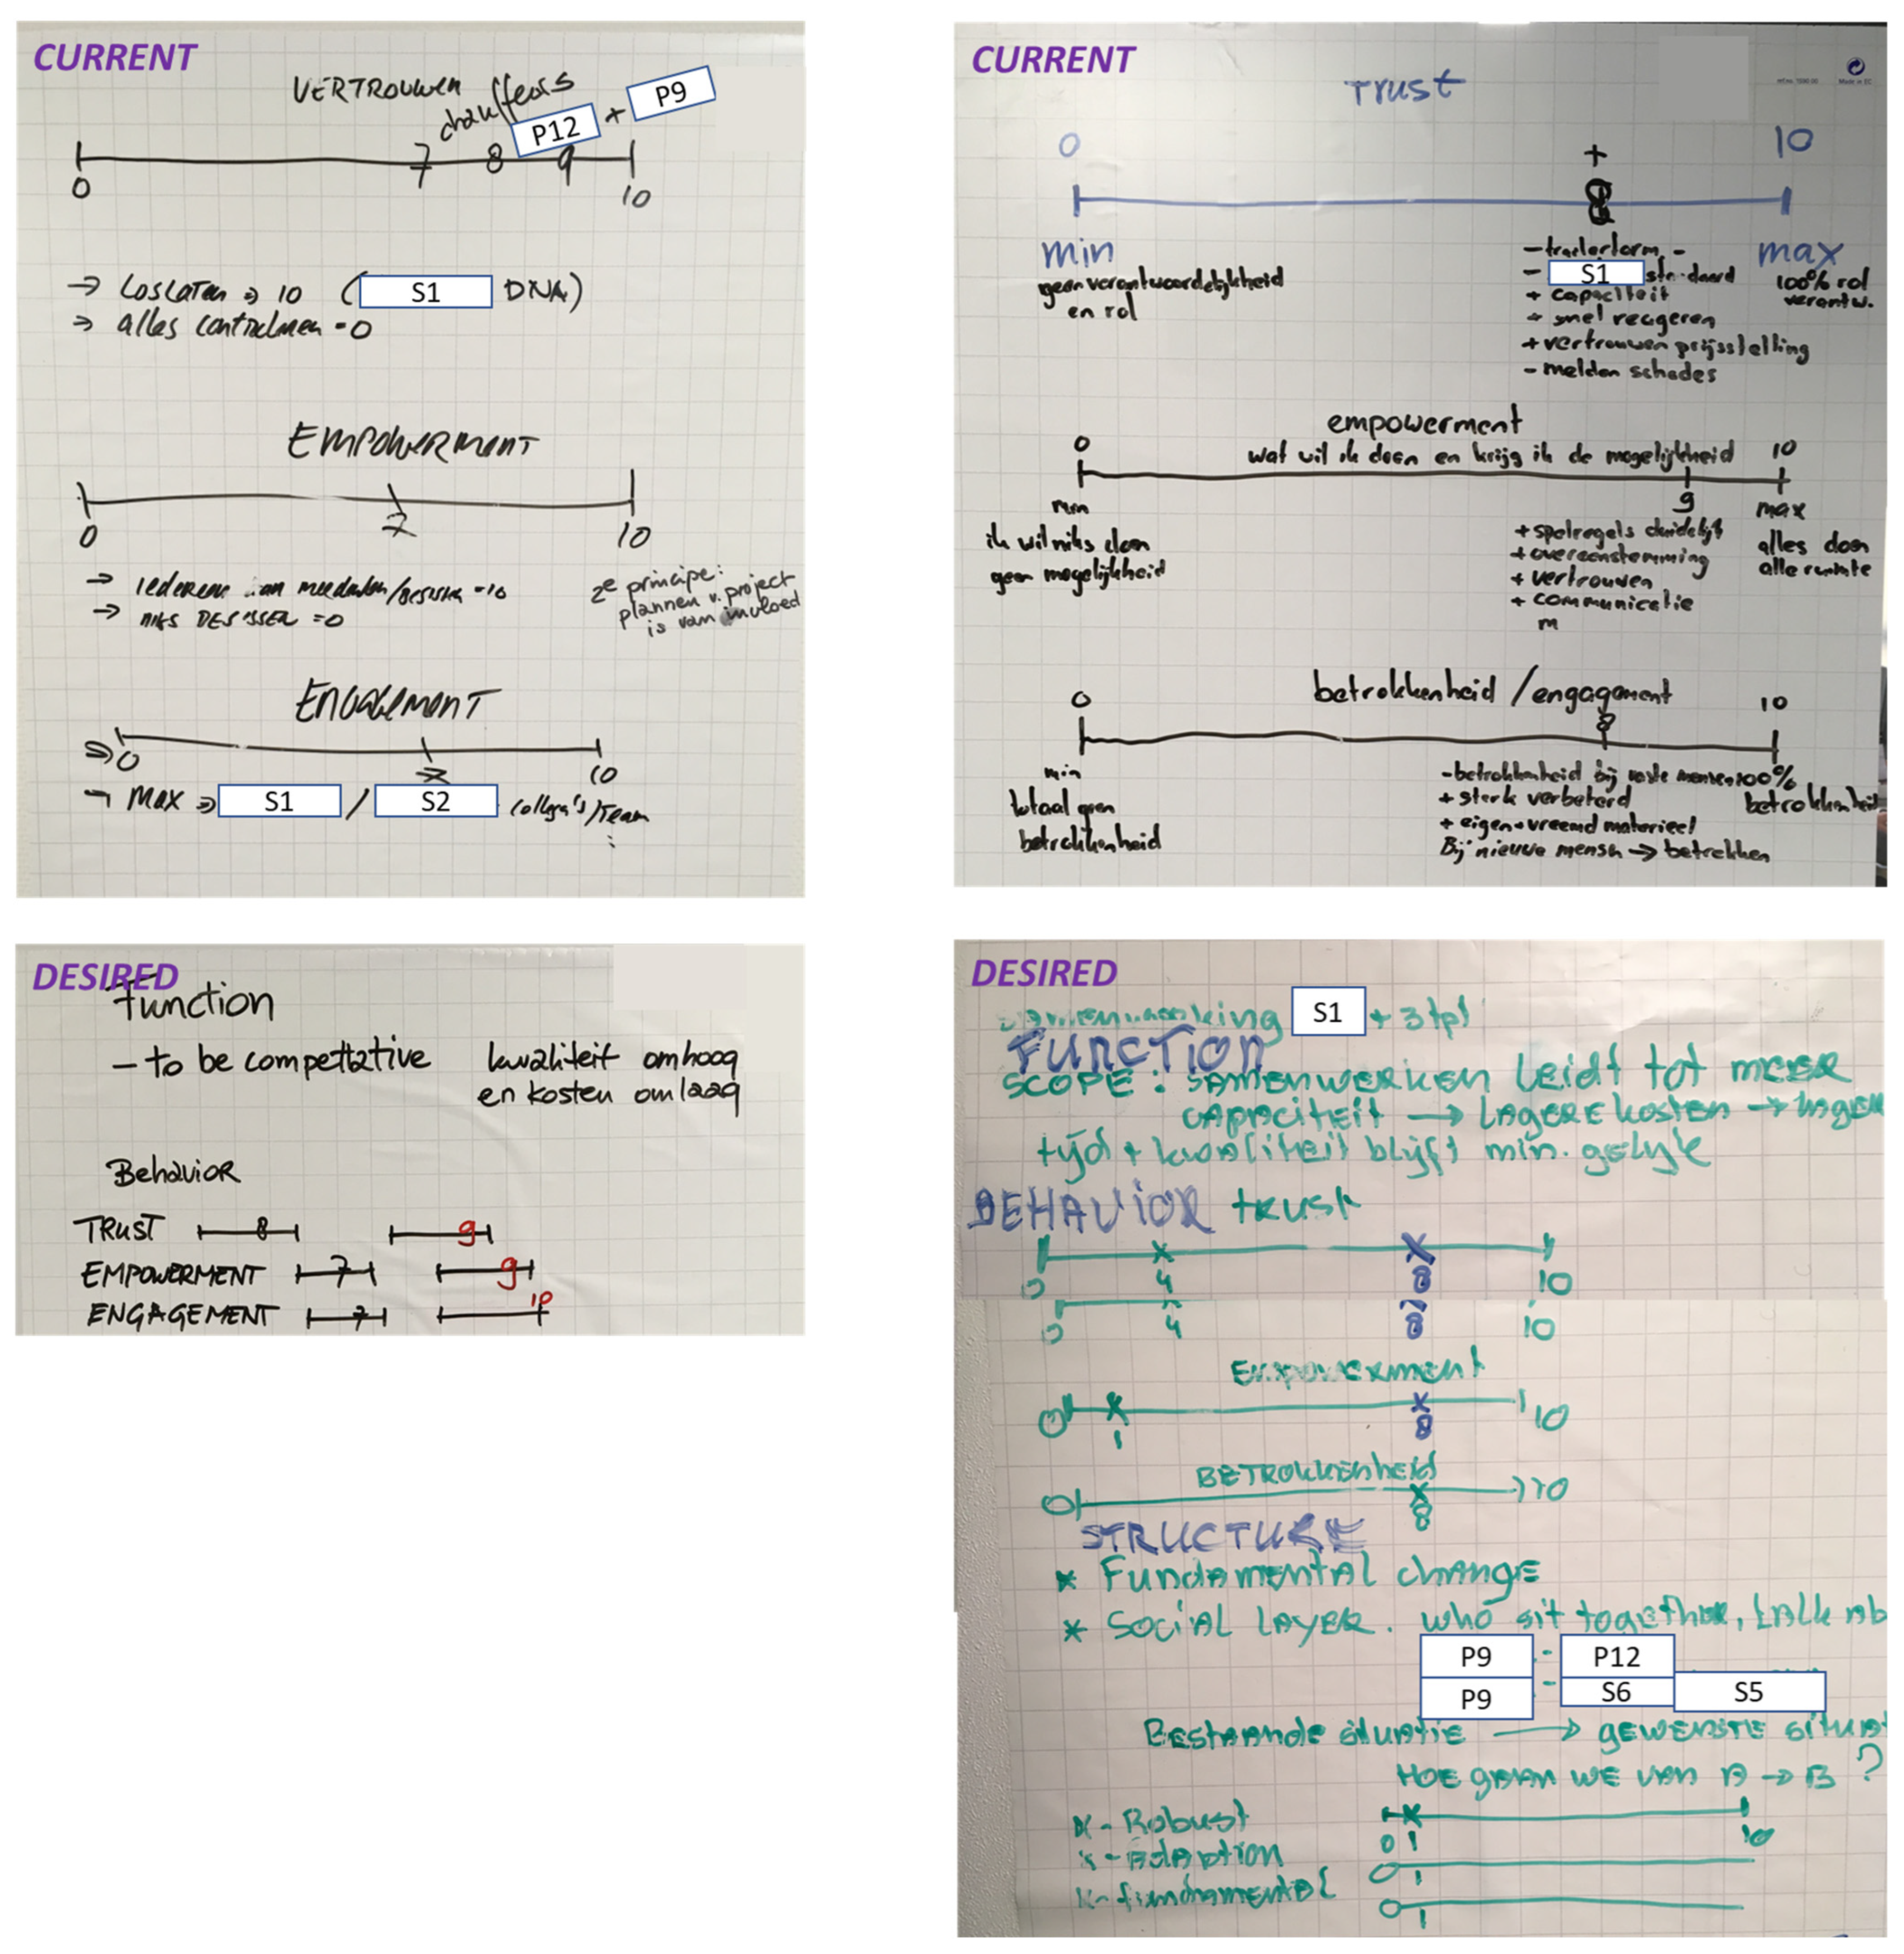 CURRENT
VERTROUWEN
chauffeurs
P12 + P9
7 8 9
0 10
→ Loslaten → 10 ( S1 DNA)
→ alles controlmen = 0
EMPOWERMENT
0 7 10
→ iedereen kan meedenken/beslissen = 10
→ niks BESLISSEN = 0
2e principe:
plannen v. project
is van invloed
ENGAGEMENT
0 7 10
MAX → S1 / S2 collega's/Team
CURRENT
Trust
0 + 10
8
min max
geen verantwoordelijkheid
en rol
- trailerform -
- S1 standaard
+ capaciteit
+ snel reageren
+ vertrouwen prijsstelling
- melden schades
100% rol
verantw.
empowerment
wat wil ik doen en krijg ik de mogelijkheid
0 9 10
min max
ik wil niks doen
geen mogelijkheid
+ spelregels duidelijk
+ overeenstemming
+ vertrouwen
+ communicatie
m
alles doen
alle ruimte
betrokkenheid / engagement
0 8 10
min
totaal geen
betrokkenheid
- betrokkenheid bij vaste mensen
+ sterk verbeterd
+ eigen + vreemd materieel
Bij nieuwe mensn → betrekken
100%
betrokkenheid
DESIRED
Function
- to be compettative kwaliteit omhoog
en kosten omlaag
Behavior
TRUST 8 9
EMPOWERMENT 7 9
ENGAGEMENT 7 10
DESIRED
samenwerking S1 + 3tpl
FUNCTION
SCOPE: SAMENWERKEN leidt tot meer
capaciteit → LAGERE kosten → lager
tijd + kwaliteit blijft min. gelijk
BEHAVIOR trust
4 8
0 10
0 4 8 10
Empowerment
0 1 8 10
BETROKKENheid
0 8 10
STRUCTURE
* Fundamental change
* Social LAYER. who sit together, talk ab
P9 - P12
P9 - S6 S5
Bestaande situatie → gewenste situat
HOE gaan we van A → B ?
x - Robust
0 1 10
x - Adaption
0 1
x - fundamental
0 1